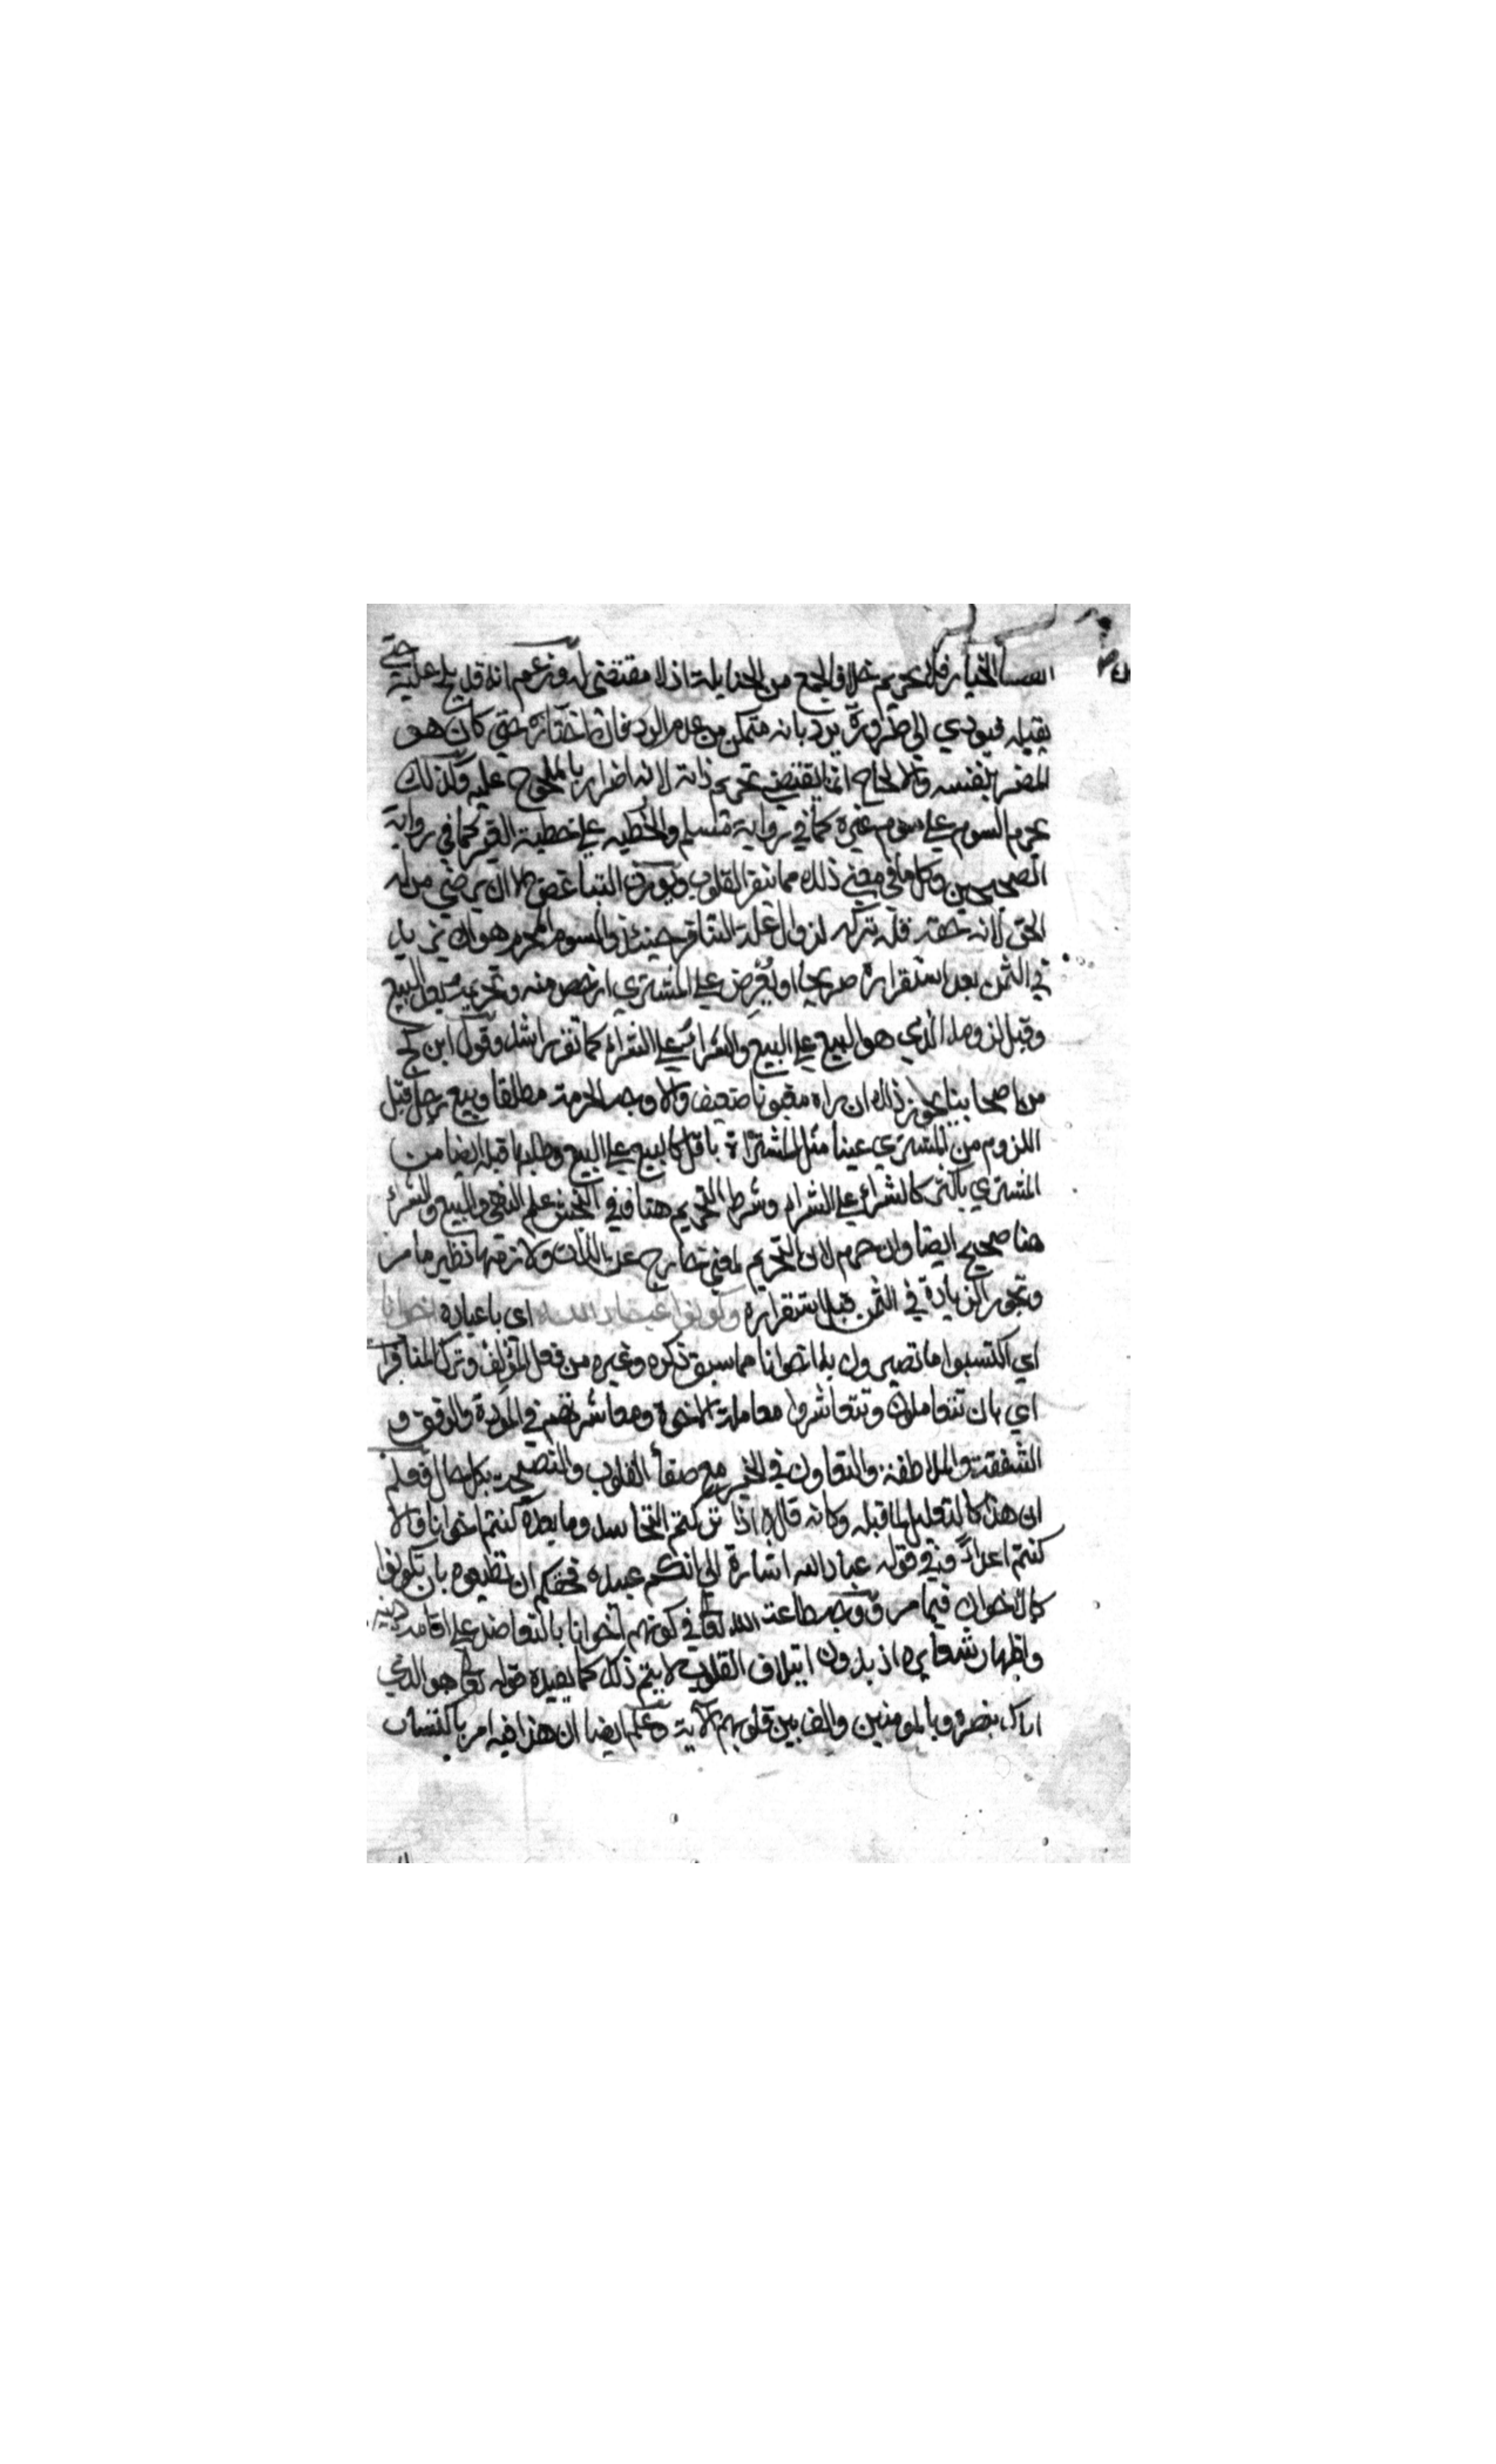 الفسخ الخيار فلا تحريم خلافا لجمع من الحنابلة اذ لا مقتضى له وزعم انه قد يلح عليه حتى
يقيله فيودي الى ضرورة يرد بانه متمكن من عدم الرد فان اختاره حتى كان هو
المضر بنفسه والالحاح انما يقتضي تحريم ذاته لانه اضرار بالملحوح عليه وكذلك
يحرم السوم على سوم غيره كما في رواية مسلم والخطبة على خطبة الغير كما في رواية
الصحيحين وكل ما في معنى ذلك مما ينفر القلوب ويورث التباغض الا ان يرضي من له
الحق لانه حقه فله تركه لزوال علة التنافر حينئذ والسوم المحرم هو ان يزيد
في الثمن بعد استقراره صريحا او يعرض على المشتري ارخص منه وتحريمه بعد البيع
وقبل لزومه الذي هو البيع على البيع والشراء على الشراء كما تقرر اشد وقول ابن كج
من اصحابنا يجوز ذلك ان راه مغبونا ضعيف والاوجه الحرمة مطلقا وبيع رجل قبل
اللزوم من المشتري عينا مثل المشتراة باقل كالبيع على البيع وطلبها قبله ايضا من
المشتري باكثر كالشراء على الشراء وشرط التحريم هنا وفي النجش علم النهي والبيع والشراء
هنا صحيح ايضا وان حرم لان التحريم لمعنى خارج عن الذات ولازمها نظير ما مر
وتجوز الزيادة في الثمن قبل استقراره وكونوا عباد الله اي يا عباده اخوانا
اي اكتسبوا ما تصيرون به اخوانا مما سبق ذكره وغيره من فعل المؤلف وترك المنافر
اي بان تتعاملوا وتتعاشروا معاملة الاخوة ومعاشرتهم في المودة والرفق و
الشفقة والملاطفة والتعاون في الخير مع صفاء القلوب والنصيحة بكل حال فعلم
ان هذا كالتعليل لما قبله وكانه قال اذا تركتم التحاسد وما بعده كنتم اخوانا والا
كنتم اعداء وفي قوله عباد الله اشارة الى انكم عبيده فحقكم ان تطيعوه بان تكونوا
كالاخوان فيما مر ووجه طاعة الله تعالى في كونهم اخوانا بالتعاضد على اقامة دينه
واظهار شعايره اذ بدون ايتلاف القلوب لا يتم ذلك كما يفيده قوله تعالى هو الذي
ايدك بنصره وبالمومنين والف بين قلوبهم الاية وعلم ايضا ان هذا فيه امر باكتساب